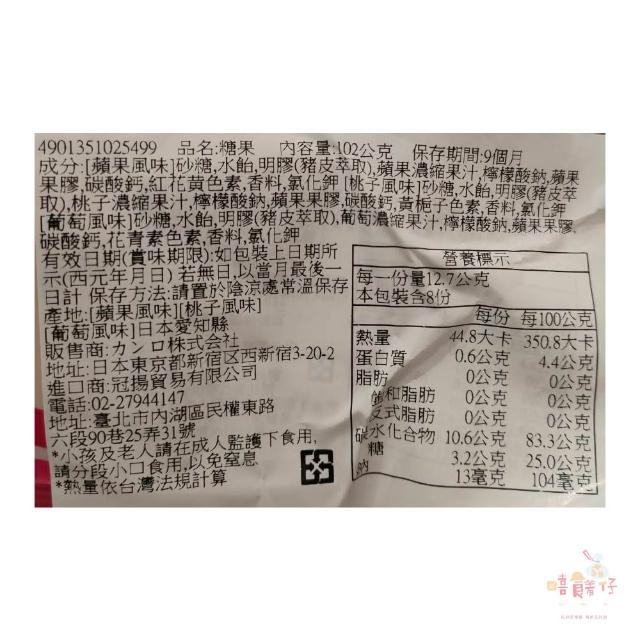 4901351025499 品名:糖果 內容量:102公克 保存期間:9個月
成分:[蘋果風味]砂糖,水飴,明膠(豬皮萃取),蘋果濃縮果汁,檸檬酸鈉,蘋果
果膠,碳酸鈣,紅花黃色素,香料,氯化鉀 [桃子風味]砂糖,水飴,明膠(豬皮萃
取),桃子濃縮果汁,檸檬酸鈉,蘋果果膠,碳酸鈣,黃梔子色素,香料,氯化鉀
[葡萄風味]砂糖,水飴,明膠(豬皮萃取),葡萄濃縮果汁,檸檬酸鈉,蘋果果膠,
碳酸鈣,花青素色素,香料,氯化鉀
有效日期(賞味期限):如包裝上日期所
示(西元年月日) 若無日,以當月最後一
日計 保存方法:請置於陰涼處常溫保存
產地:[蘋果風味][桃子風味]
[葡萄風味]日本愛知縣
販售商:カンロ株式会社
地址:日本東京都新宿区西新宿3-20-2
進口商:冠揚貿易有限公司
電話:02-27944147
地址:臺北市內湖區民權東路
六段90巷25弄31號
*小孩及老人請在成人監護下食用,
請分段小口食用,以免窒息
*熱量依台灣法規計算
營養標示
每一份量12.7公克
本包裝含8份
每份 每100公克
熱量 44.8大卡 350.8大卡
蛋白質 0.6公克 4.4公克
脂肪 0公克 0公克
飽和脂肪 0公克 0公克
反式脂肪 0公克 0公克
碳水化合物 10.6公克 83.3公克
糖 3.2公克 25.0公克
鈉 13毫克 104毫克